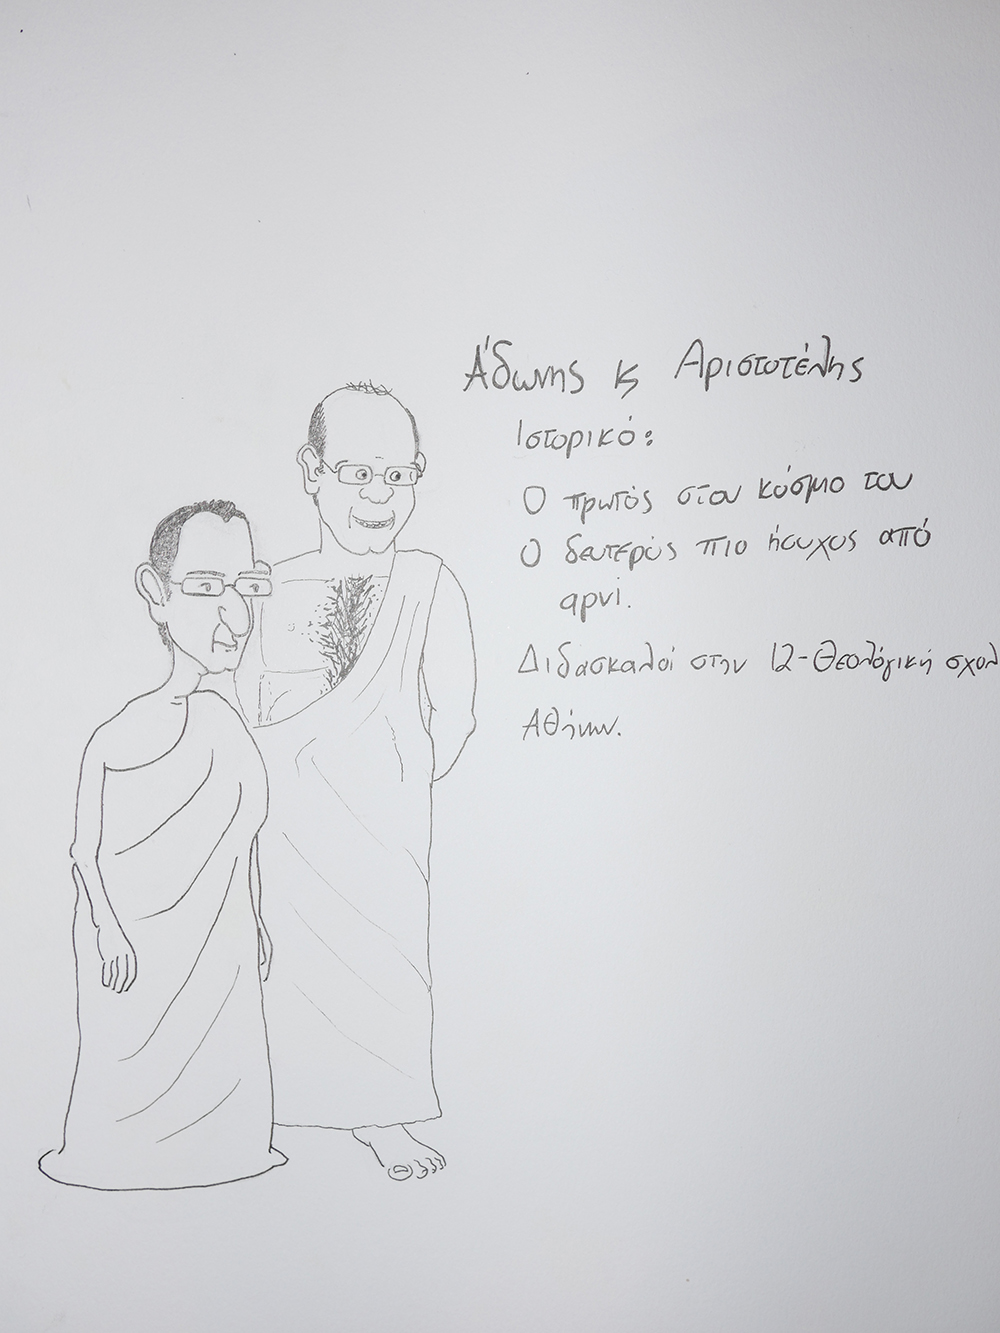 Άδωνης κ Αριστοτέλης
Ιστορικό:
Ο πρωτός στον κόσμο του
Ο δευτερός πιο ήσυχος από
αρνί.
Διδασκαλοί στην 12-Θεολόγική σχολ
Αθήνων.